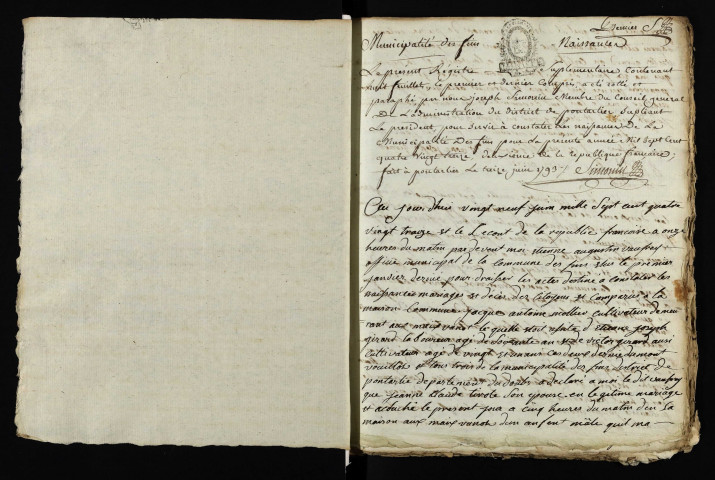 Premier S
Municipalité des fins Naissances
Le présent Registre Suplementaire contenant
huit feuillet, le premier et dernier Compris, a été cotté et
paraphé par nous joseph Simonin Membre du Conseil general
De L'administration du District de pontarlier Supleant
Le president, pour servir à constater les naissances de La
Municipalité Des fins pour la presente année Mil Sept Cent
quatre vingt treize, deuxième de la republique françoise;
fait à pontarlier Le treize juin 1793 Simonin
Cejourdhui vingt neuf juin mille Sept cent quatre
vingt traize et le second de la republique francoise a onze
heures du matin par devent moi etienne augustin
officié municipal de la commune des fins eslus le premier
janvier dernié pour draisser les actes destiné a constater les
naissances mariages et décès des Citoyens est comparus a la
maison Commune jacques antoine mollier cultivateur demeu
rant aux maix vanot le quelle etoit assisté d'etienne joseph
girard laboureur agé de soixante an et de victor girard aussi
cultivateur agé de vingt et un ans
tous trois de la municipalité des fins district de
pontarlié departement du doubs a déclaré a moi le dit
que jeanne claude son epouse en legitime mariage
est acouché le present jour a cinq heures du matin den la
maison aux maix vanot dun enfent mâle quil ma